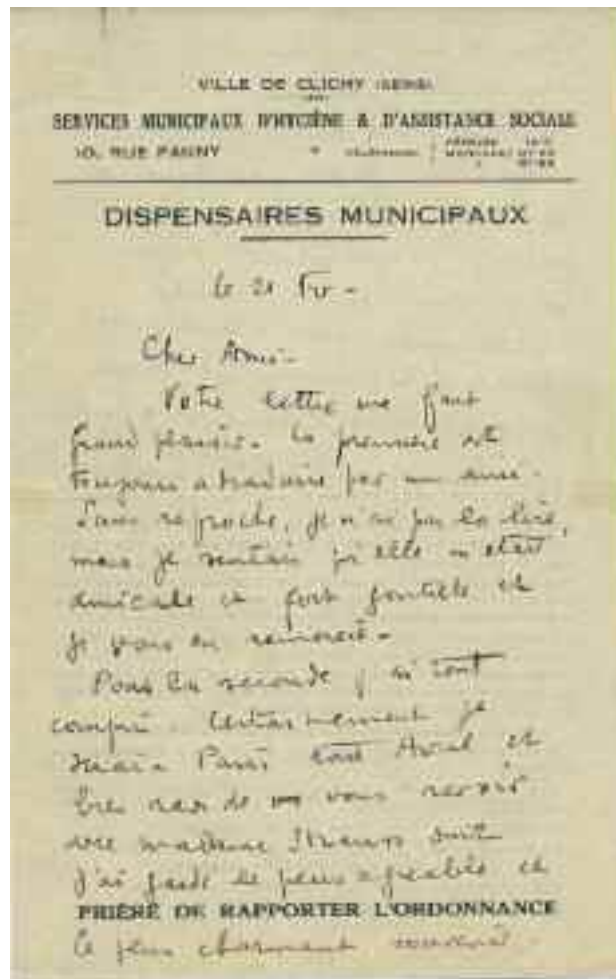 VILLE DE CLICHY (SEINE)
SERVICES MUNICIPAUX D'HYGIÈNE & D'ASSISTANCE SOCIALE
10, RUE FANNY
DISPENSAIRES MUNICIPAUX
le 21
Cher Ami-
Votre lettre me fait
grand plaisir. La première est
toujours à traduire par un ami.
Sans reproche, je n'ai pu la lire,
mais je sentais qu'elle m'était
amicale et fort gentille et
je vous en remercie-
Pour la seconde j'ai tout
compris. Certainement je
serai à Paris tout Avril et
très de vous revoir
avec madame Strauss
J'ai gardé le plus agréable et
PRIÈRE DE RAPPORTER L'ORDONNANCE
le plus charmant souvenir.